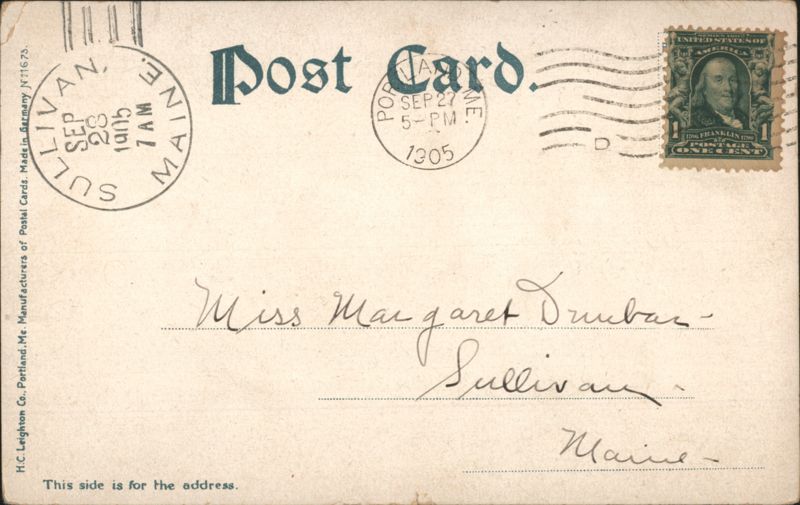 Post Card.
SULLIVAN, MAINE.
SEP
28
1905
7 AM
PORTLAND, ME.
SEP 27
5-PM
1905
D
SERIES 1902
UNITED STATES OF
AMERICA
1 1706 FRANKLIN 1790 1
POSTAGE
ONE CENT
Miss Margaret Dunbar-
Sullivan-
Maine-
H.C. Leighton Co., Portland, Me. Manufacturers of Postal Cards. Made in Germany Nº 1673.
This side is for the address.